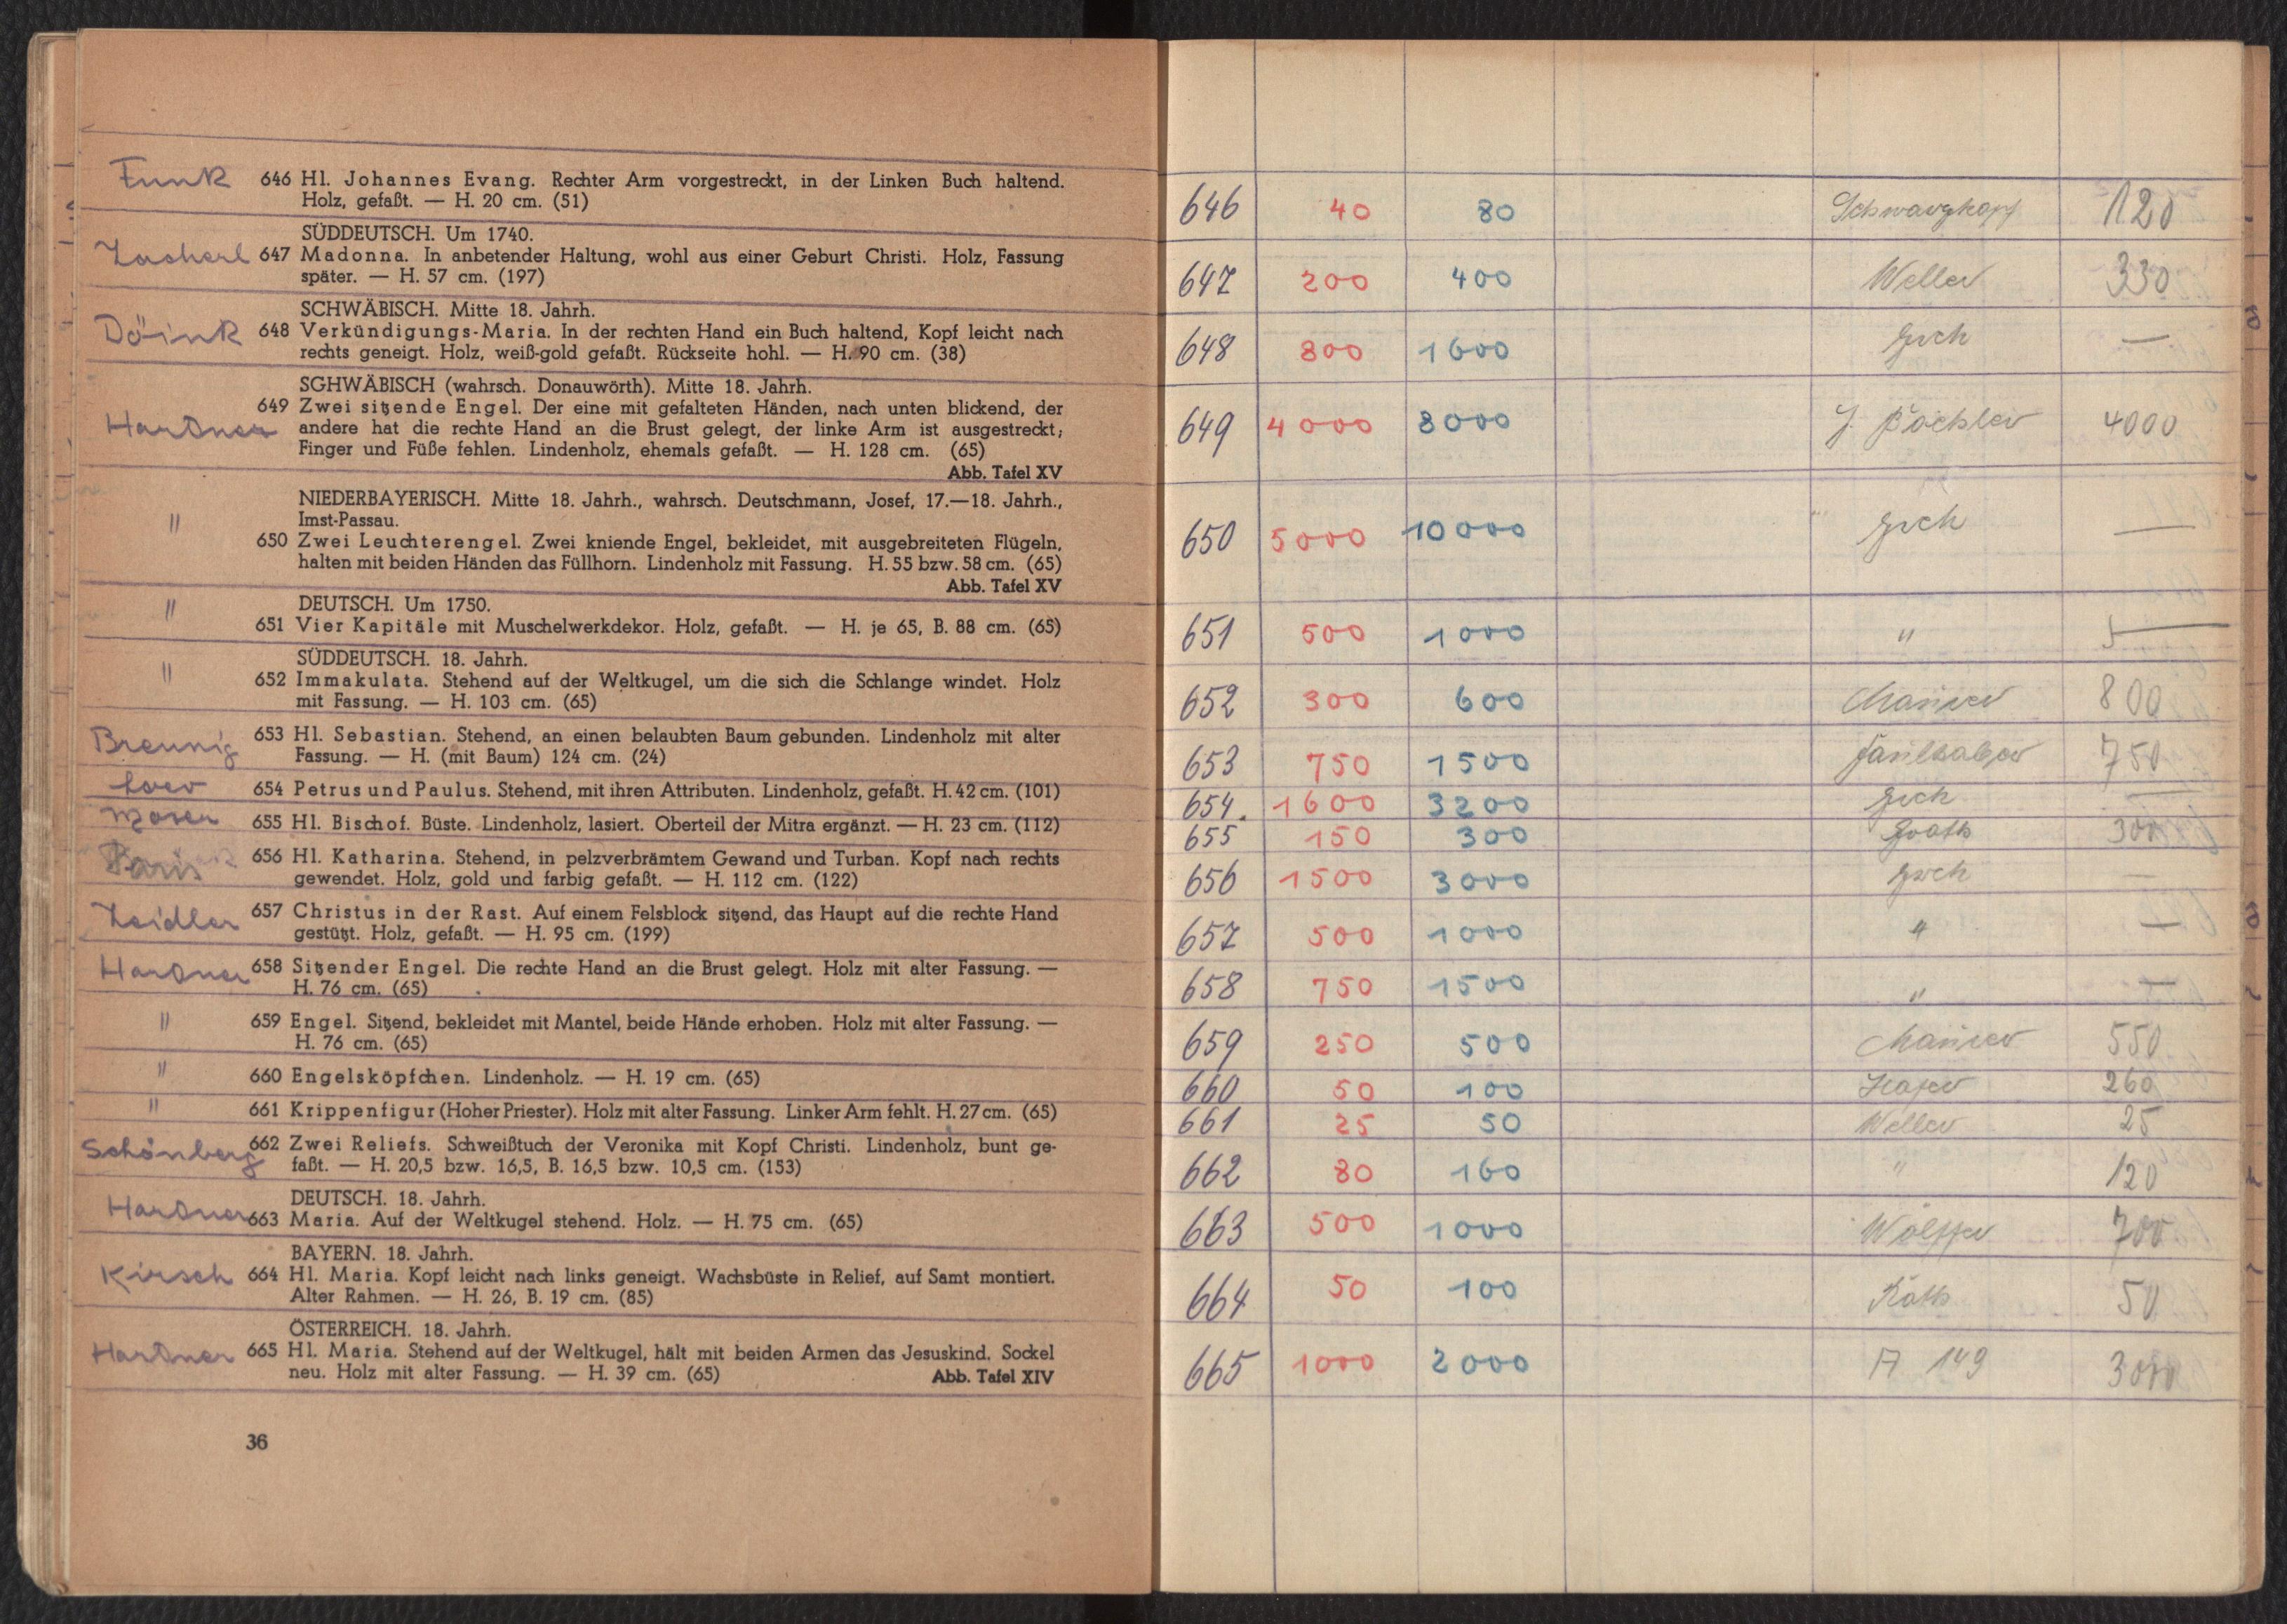 Funk 646 Hl. Johannes Evang. Rechter Arm vorgestreckt, in der Linken Buch haltend.
Holz, gefaßt. — H. 20 cm. (51)
SÜDDEUTSCH. Um 1740.
647 Madonna. In anbetender Haltung, wohl aus einer Geburt Christi. Holz, Fassung
später. — H. 57 cm. (197)
SCHWÄBISCH. Mitte 18. Jahrh.
648 Verkündigungs-Maria. In der rechten Hand ein Buch haltend, Kopf leicht nach
rechts geneigt. Holz, weiß-gold gefaßt. Rückseite hohl. — H. 90 cm. (38)
SGHWÄBISCH (wahrsch. Donauwörth). Mitte 18. Jahrh.
649 Zwei sitzende Engel. Der eine mit gefalteten Händen, nach unten blickend, der
Hartner andere hat die rechte Hand an die Brust gelegt, der linke Arm ist ausgestreckt;
Finger und Füße fehlen. Lindenholz, ehemals gefaßt. — H. 128 cm. (65)
Abb. Tafel XV
NIEDERBAYERISCH. Mitte 18. Jahrh., wahrsch. Deutschmann, Josef, 17.—18. Jahrh.,
" Imst-Passau.
650 Zwei Leuchterengel. Zwei kniende Engel, bekleidet, mit ausgebreiteten Flügeln,
halten mit beiden Händen das Füllhorn. Lindenholz mit Fassung. H. 55 bzw. 58 cm. (65)
Abb. Tafel XV
" DEUTSCH. Um 1750.
651 Vier Kapitäle mit Muschelwerkdekor. Holz, gefaßt. — H. je 65, B. 88 cm. (65)
SÜDDEUTSCH. 18. Jahrh.
" 652 Immakulata. Stehend auf der Weltkugel, um die sich die Schlange windet. Holz
mit Fassung. — H. 103 cm. (65)
Breunig 653 Hl. Sebastian. Stehend, an einen belaubten Baum gebunden. Lindenholz mit alter
Fassung. — H. (mit Baum) 124 cm. (24)
654 Petrus und Paulus. Stehend, mit ihren Attributen. Lindenholz, gefaßt. H. 42 cm. (101)
Moser 655 Hl. Bischof. Büste. Lindenholz, lasiert. Oberteil der Mitra ergänzt. — H. 23 cm. (112)
Paris 656 Hl. Katharina. Stehend, in pelzverbrämtem Gewand und Turban. Kopf nach rechts
gewendet. Holz, gold und farbig gefaßt. — H. 112 cm. (122)
Zeidler 657 Christus in der Rast. Auf einem Felsblock sitzend, das Haupt auf die rechte Hand
gestützt. Holz, gefaßt. — H. 95 cm. (199)
Hartner 658 Sitzender Engel. Die rechte Hand an die Brust gelegt. Holz mit alter Fassung. —
H. 76 cm. (65)
" 659 Engel. Sitzend, bekleidet mit Mantel, beide Hände erhoben. Holz mit alter Fassung. —
H. 76 cm. (65)
" 660 Engelsköpfchen. Lindenholz. — H. 19 cm. (65)
" 661 Krippenfigur (Hoher Priester). Holz mit alter Fassung. Linker Arm fehlt. H. 27 cm. (65)
Schönberg 662 Zwei Reliefs. Schweißtuch der Veronika mit Kopf Christi. Lindenholz, bunt ge-
faßt. — H. 20,5 bzw. 16,5, B. 16,5 bzw. 10,5 cm. (153)
DEUTSCH. 18. Jahrh.
Hartner 663 Maria. Auf der Weltkugel stehend. Holz. — H. 75 cm. (65)
BAYERN. 18. Jahrh.
Kirsch 664 Hl. Maria. Kopf leicht nach links geneigt. Wachsbüste in Relief, auf Samt montiert.
Alter Rahmen. — H. 26, B. 19 cm. (85)
ÖSTERREICH. 18. Jahrh.
Hartner 665 Hl. Maria. Stehend auf der Weltkugel, hält mit beiden Armen das Jesuskind. Sockel
neu. Holz mit alter Fassung. — H. 39 cm. (65) Abb. Tafel XIV
36
646 40 80 120
647 200 400 Weller 330
648 800 1600 —
649 4000 8000 4000
650 5000 10000 —
651 500 1000 " —
652 300 600 800
653 750 1500 Faulhaber 750
654. 1600 3200 —
655 150 300 300
656 1500 3000 —
657 500 1000 " —
658 750 1500 " —
659 250 500 550
660 50 100 260
661 25 50 Weller 25
662 80 160 " 120
663 500 1000 700
664 50 100 Roth 50
665 1000 2000 A 149 3000